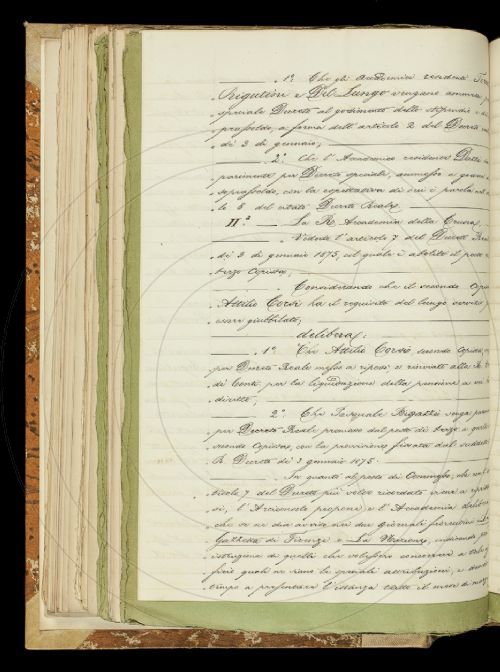 1.º Che gli Accademici residenti
Rigutini e Del Lungo vengano ammessi
speciale Decreto al godimento dello stipendio e
soprassoldo, a forma dell'articolo 2 del Decreto
di 3 di gennaio;
2.º Che l'Accademico residente
parimente per Decreto speciale, ammesso a godere
soprassoldo, con la aspettativa di cui è parola
lo 5 del citato Decreto Reale.
II.º La R. Accademia della Crusca,
Veduto l'articolo 7 del Decreto
di 3 di gennaio 1875, col quale è abolito il posto
terzo Copista,
Considerando che il secondo
Attilio Corsi ha il requisito del lungo servizio
essere giubbilato,
delibera:
1.º Che Attilio Corsi secondo Copista,
per Decreto Reale messo a riposo, e rinviato alla
di Conti, per la liquidazione della pensione a cui
diritto,
2.º Che Pasquale Bigazzi venga
per Decreto Reale promosso dal posto di terzo a quello
secondo Copista, con la provvisione fissata dal suddetto
R. Decreto di 3 gennaio 1875.
In quanto al posto di Commesso, che
ticolo 7 del Decreto più volte ricordato viene a
si, l'Arciconsolo propone e l'Accademia
che se ne dia avviso nei due giornali fiorentini La
Gazzetta di Firenze e La Nazione,
istruzione di quelli che volessero concorrere a
ficio quali ne siano le speciali attribuzioni, e
tempo a presentare l'istanza tutto il mese di